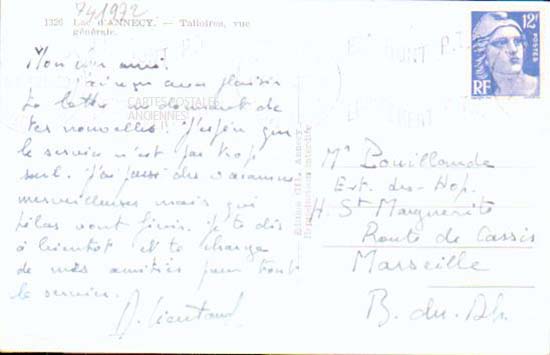 741972
1326 Lac d'ANNECY. — Talloires, vue
générale.
12F
POSTES
RF
Mon cher ami.
J'ai reçu avec plaisir
ta lettre me donnant de
tes nouvelles. J'espère que
le service n'est pas trop
seul. J'ai passé des vacances
merveilleuses mais qui
hélas vont finir. Je te dis
à bientôt et te charge
de mes amitiés pour tout
le service.
CARTES POSTALES
ANCIENNES
Reproduction interdite
Mr Bouillaude
Ext. des Hop.
H. St Marguerite
Route de Cassis
Marseille
B. du. Rh.